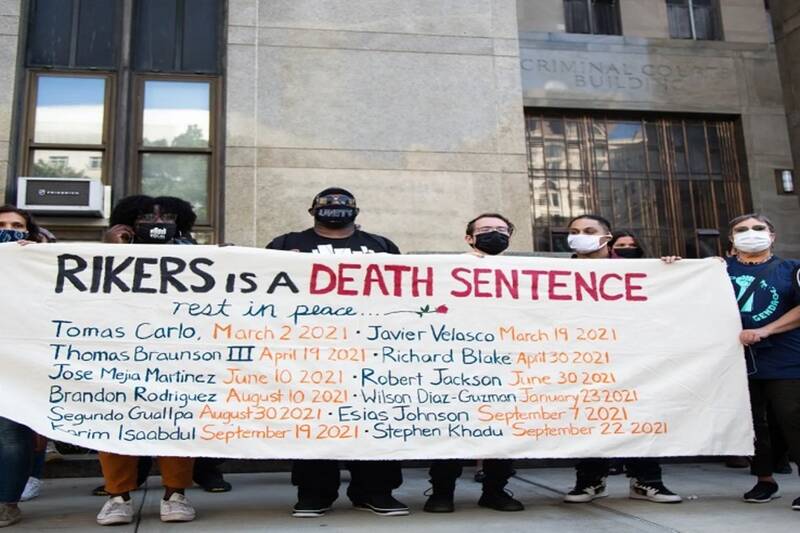 CRIMINAL COURTS
BUILDING
FRIEDRICH
UNITY
RIKERS IS A DEATH SENTENCE
rest in peace...
Tomas Carlo, March 2 2021 · Javier Velasco March 19 2021
Thomas Braunson III April 19 2021 · Richard Blake April 30 2021
Jose Mejia Martinez June 10 2021 · Robert Jackson June 30 2021
Brandon Rodriguez August 10 2021 · Wilson Diaz-Guzman January 23 2021
Segundo Guallpa August 30 2021 · Esias Johnson September 7 2021
Karim Isaabdul September 19 2021 · Stephen Khadu September 22 2021